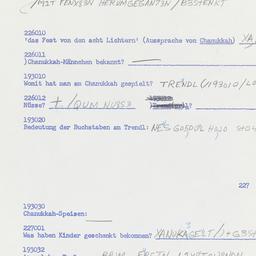 226010
'das Fest von den acht Lichtern' (Aussprache von Chanukkah) XA
226011
)Chanukkah-Männchen bekannt?
193010
Womit hat man am Chanukkah gespielt? TRENDL(/193010/LO
226012
Nüsse? + /QUM NUSSE
193020
Bedeutung der Buchstaben am Trendl: NES GODOUL HOJO SHO
227
193030
Chanukkah-Speisen:
227001
Was haben Kinder geschenkt bekommen? XANUKAGELT/
193032